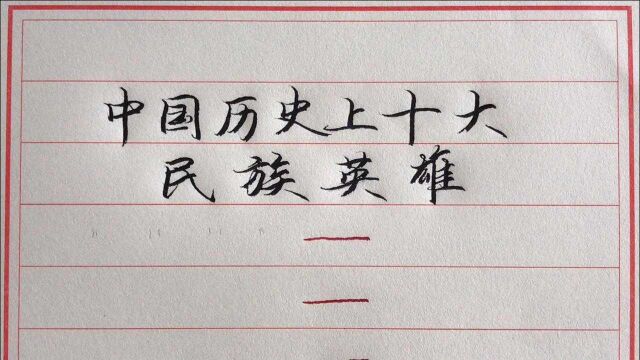 中国历史上十大
民族英雄